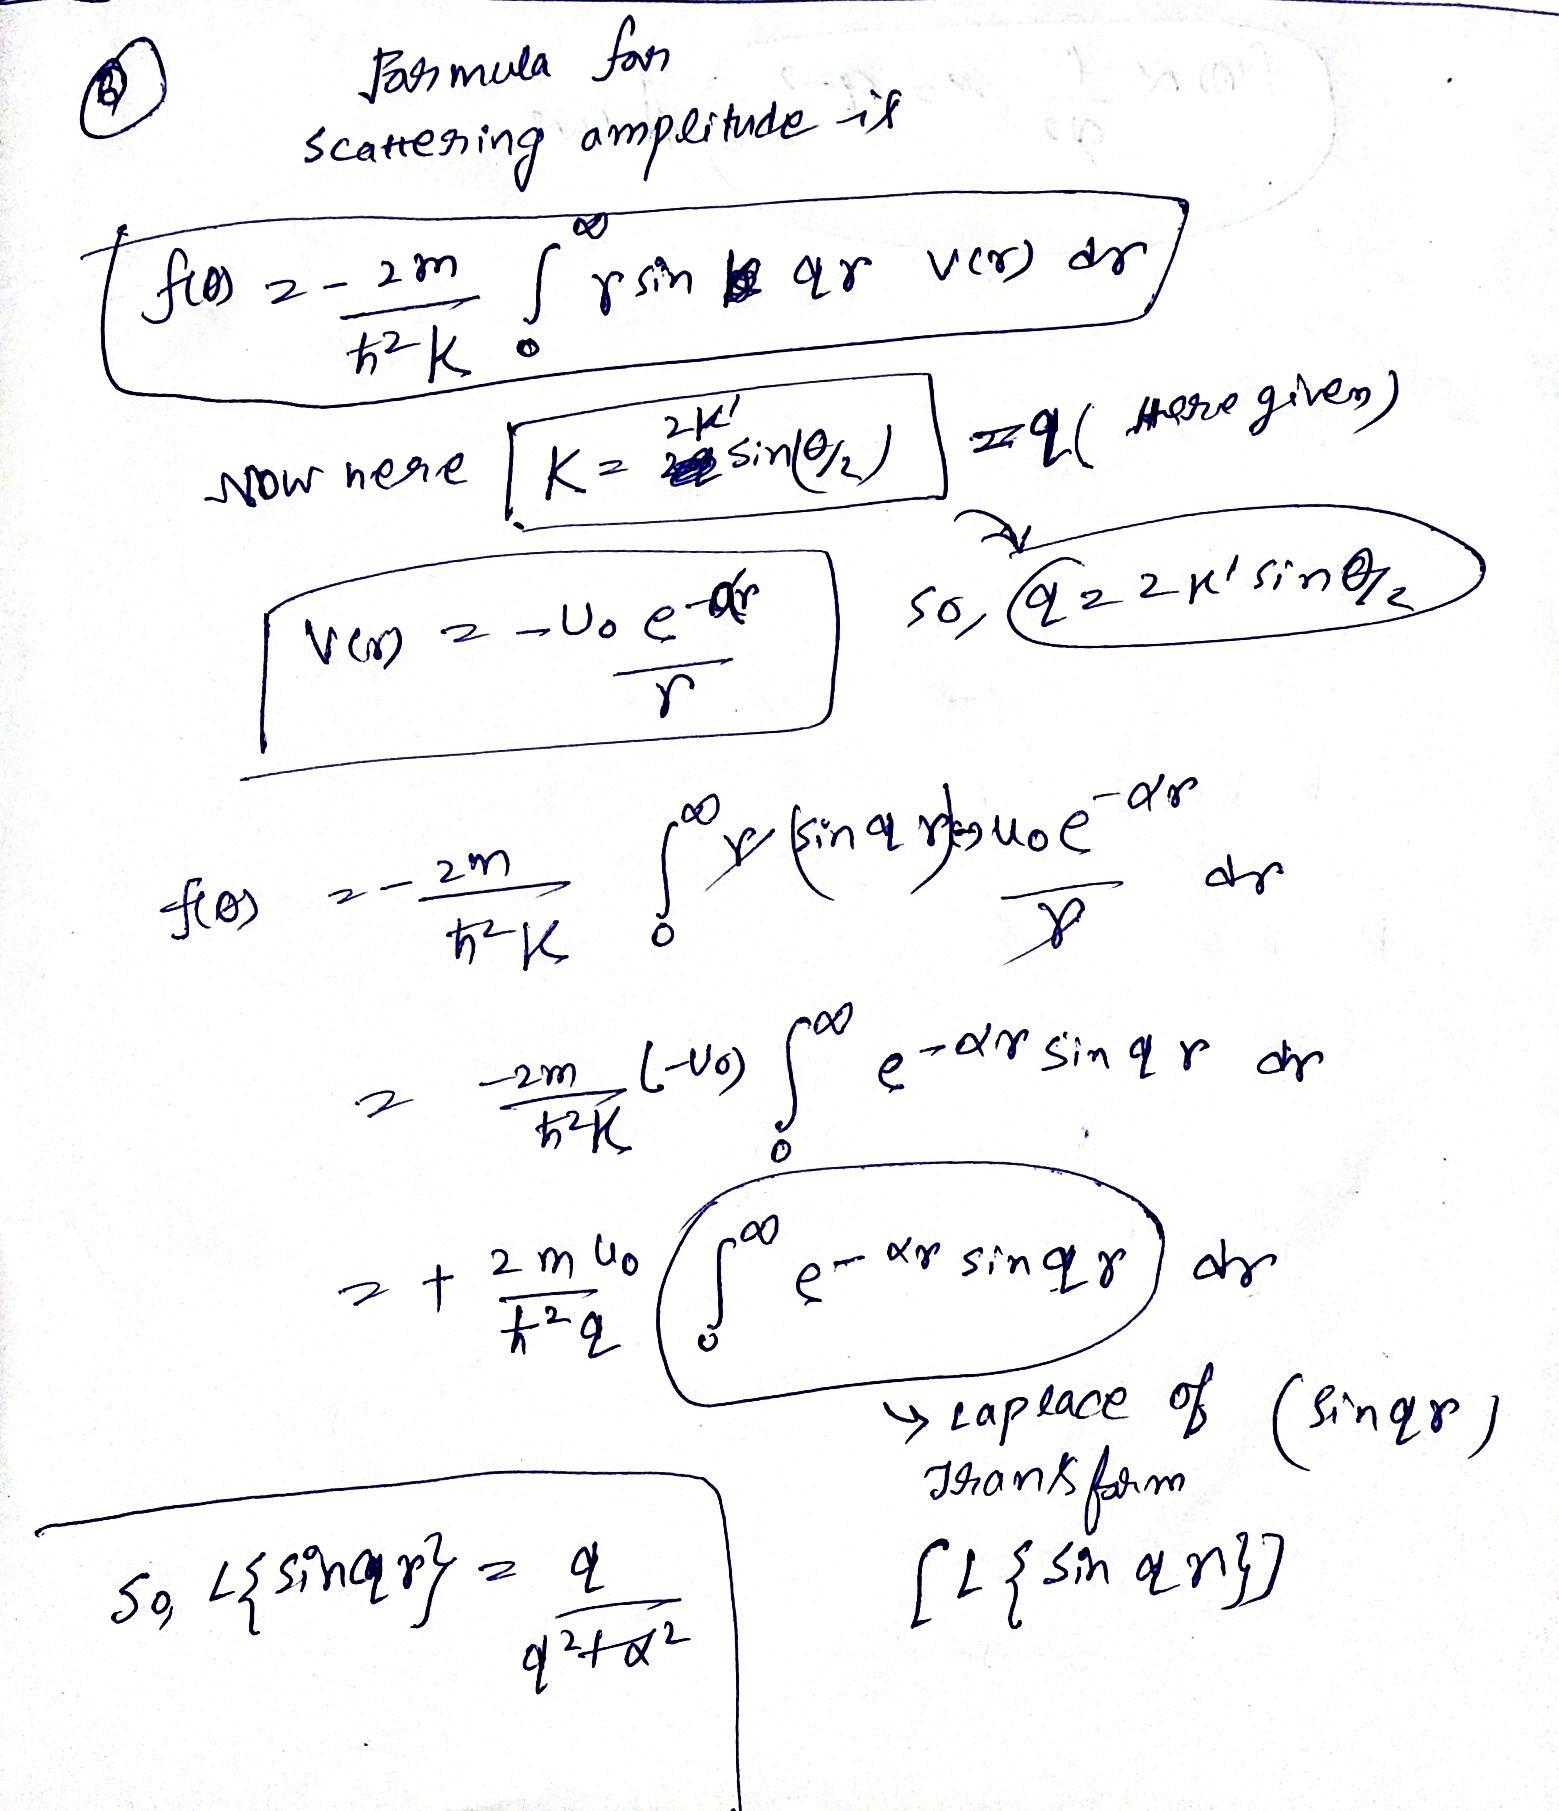 ③ Formula for
scattering amplitude is
f(θ) = - 2m/ħ²K ∫₀^∞ r sin qr V(r) dr
Now here K = 2K' sin(θ/2) = q ( Here given)
V(r) = -U₀ e^-αr / r
so, q = 2K' sin θ/2
f(θ) = - 2m/ħ²K ∫₀^∞ r (sin qr)(-) U₀ e^-αr / r dr
= -2m/ħ²K (-U₀) ∫₀^∞ e^-αr sin qr dr
= + 2mU₀/ħ²q ∫₀^∞ e^-αr sin qr dr
↳ Laplace of (sin qr)
Transform
[L{sin qr}]
So, L{sin qr} = q/(q²+α²)